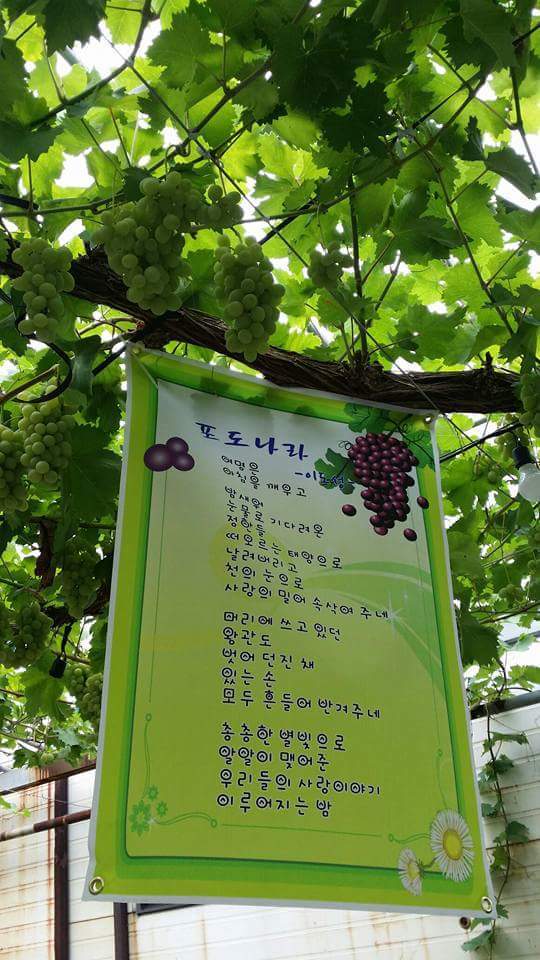 포도나라
여명은
아침을 깨우고
밤새워
눈물로 기다려온
정한들
떠오르는 태양으로
날려버리고
천의 눈으로
사랑의 밀어 속삭여 주네
머리에 쓰고 있던
왕관도
벗어 던진 채
있는 손
모두 흔들어 반겨주네
총총한 별빛으로
알알이 맺어준
우리들의 사랑이야기
이루어지는 밤